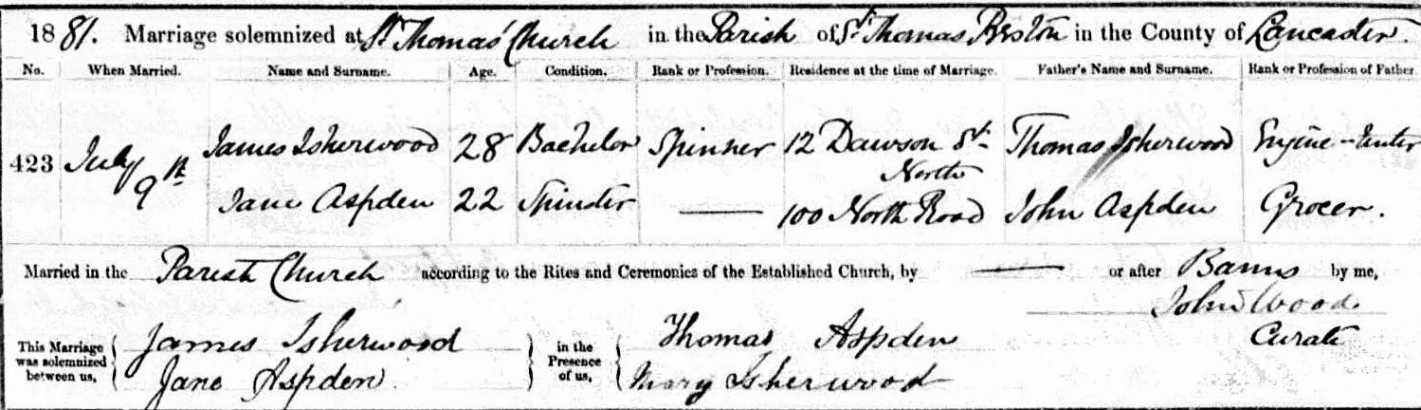 1881. Marriage solemnized at St. Thomas' Church in the Parish of St. Thomas Preston in the County of Lancaster.
No. When Married. Name and Surname. Age. Condition. Rank or Profession. Residence at the time of Marriage. Father's Name and Surname. Rank or Profession of Father.
423 July 9th James Isherwood 28 Bachelor Spinner 12 Dawson St. North Thomas Isherwood
Jane Aspden 22 Spinster —— 100 North Road John Aspden Grocer.
Married in the Parish Church according to the Rites and Ceremonies of the Established Church, by —— or after Banns by me,
John Wood
Curate
This Marriage was solemnized between us, James Isherwood in the Presence of us, Thomas Aspden
Jane Aspden Mary Isherwood